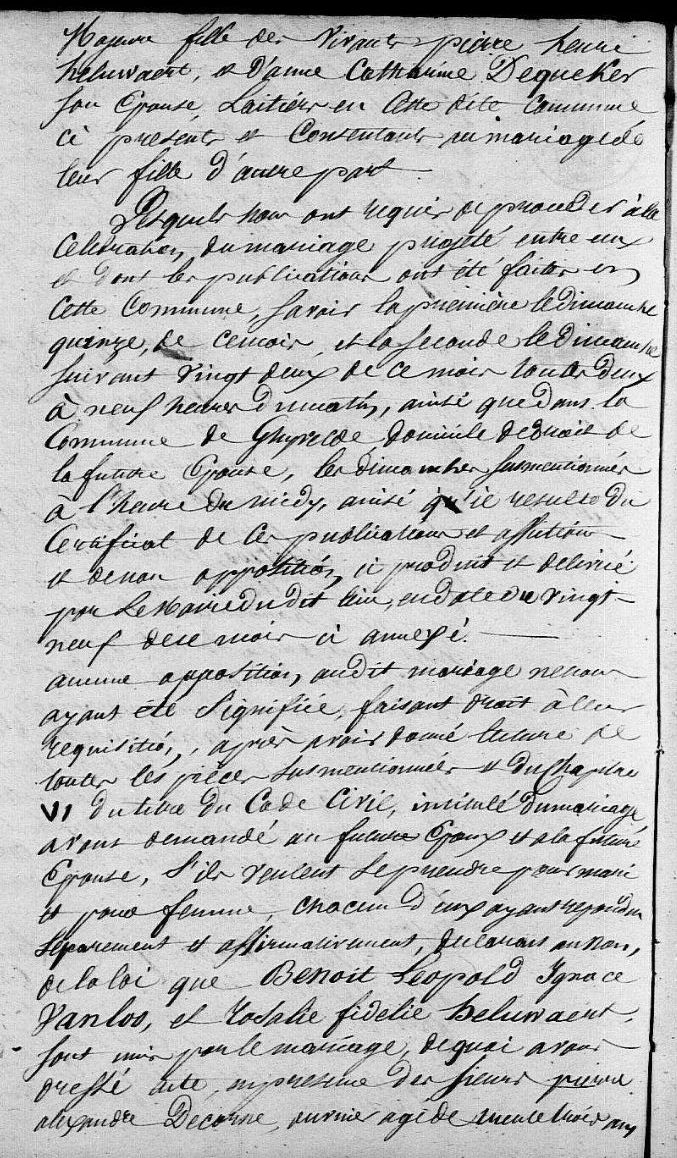 Majeure fille des vivants pierre henri
heluwaert, et D'anne Catharine Dequeker
son Epouse, Laitiers en cette dite Commune
ci presents et Consentants au mariage de
leur fille d'autre part
Lesquels nous ont requis de proceder à la
Celebration du mariage projeté entre eux
et dont les publications ont été faites en
Cette Commune, savoir la première le dimanche
quinze, de ce mois, et la seconde le Dimanche
suivant vingt deux de ce mois toutes deux
à neuf heures du matin, ainsi que dans la
Commune de Ghyvelde domicile de droit de
la future Epouse, les dimanches susmentionnés
à l'heure du midy, ainsi qu'il resulte du
Certificat de ces publications et affiction
et de non opposition, ci produit et delivré
par Le Maire du dit lieu, en date du vingt
neuf de ce mois ci annexé.
aucune opposition, audit mariage ne nous
ayant été signifiée, faisant droit à leur
requisition, après avoir donné lecture de
toutes les pièces susmentionnées et du Chapitre
VI du titre du Code Civil, intitulé Du mariage
avons demandé au future Epoux et a la future
Epouse, s'ils veulent se prendre pour mari
et pour femme, chacun d'eux ayant repondu
separement et affirmativement, declarons au nom,
de la loi que Benoit Leopold Ignace
Vanloo, et Rosalie fidelie heluwaert,
sont unis par le mariage, de quoi avons
dressé acte, en presence des sieurs pierre
alexandre Decorne, ouvrier agé de trente trois ans